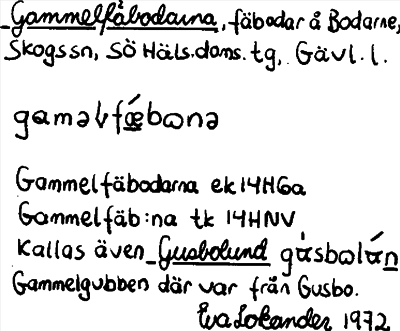 Gammelfäbodarna, fäbodar å Bodarne,
Skogssn, SÖ Häls.doms.tg, Gävl.l.
gaməlfǽbωnə
Gammelfäbodarna ek 14H6a
Gammelfäb:na tk 14HNV
Kallas även Gusbolund gúsbωlún
Gammelgubben där var från Gusbo.
Eva Lokander 1972